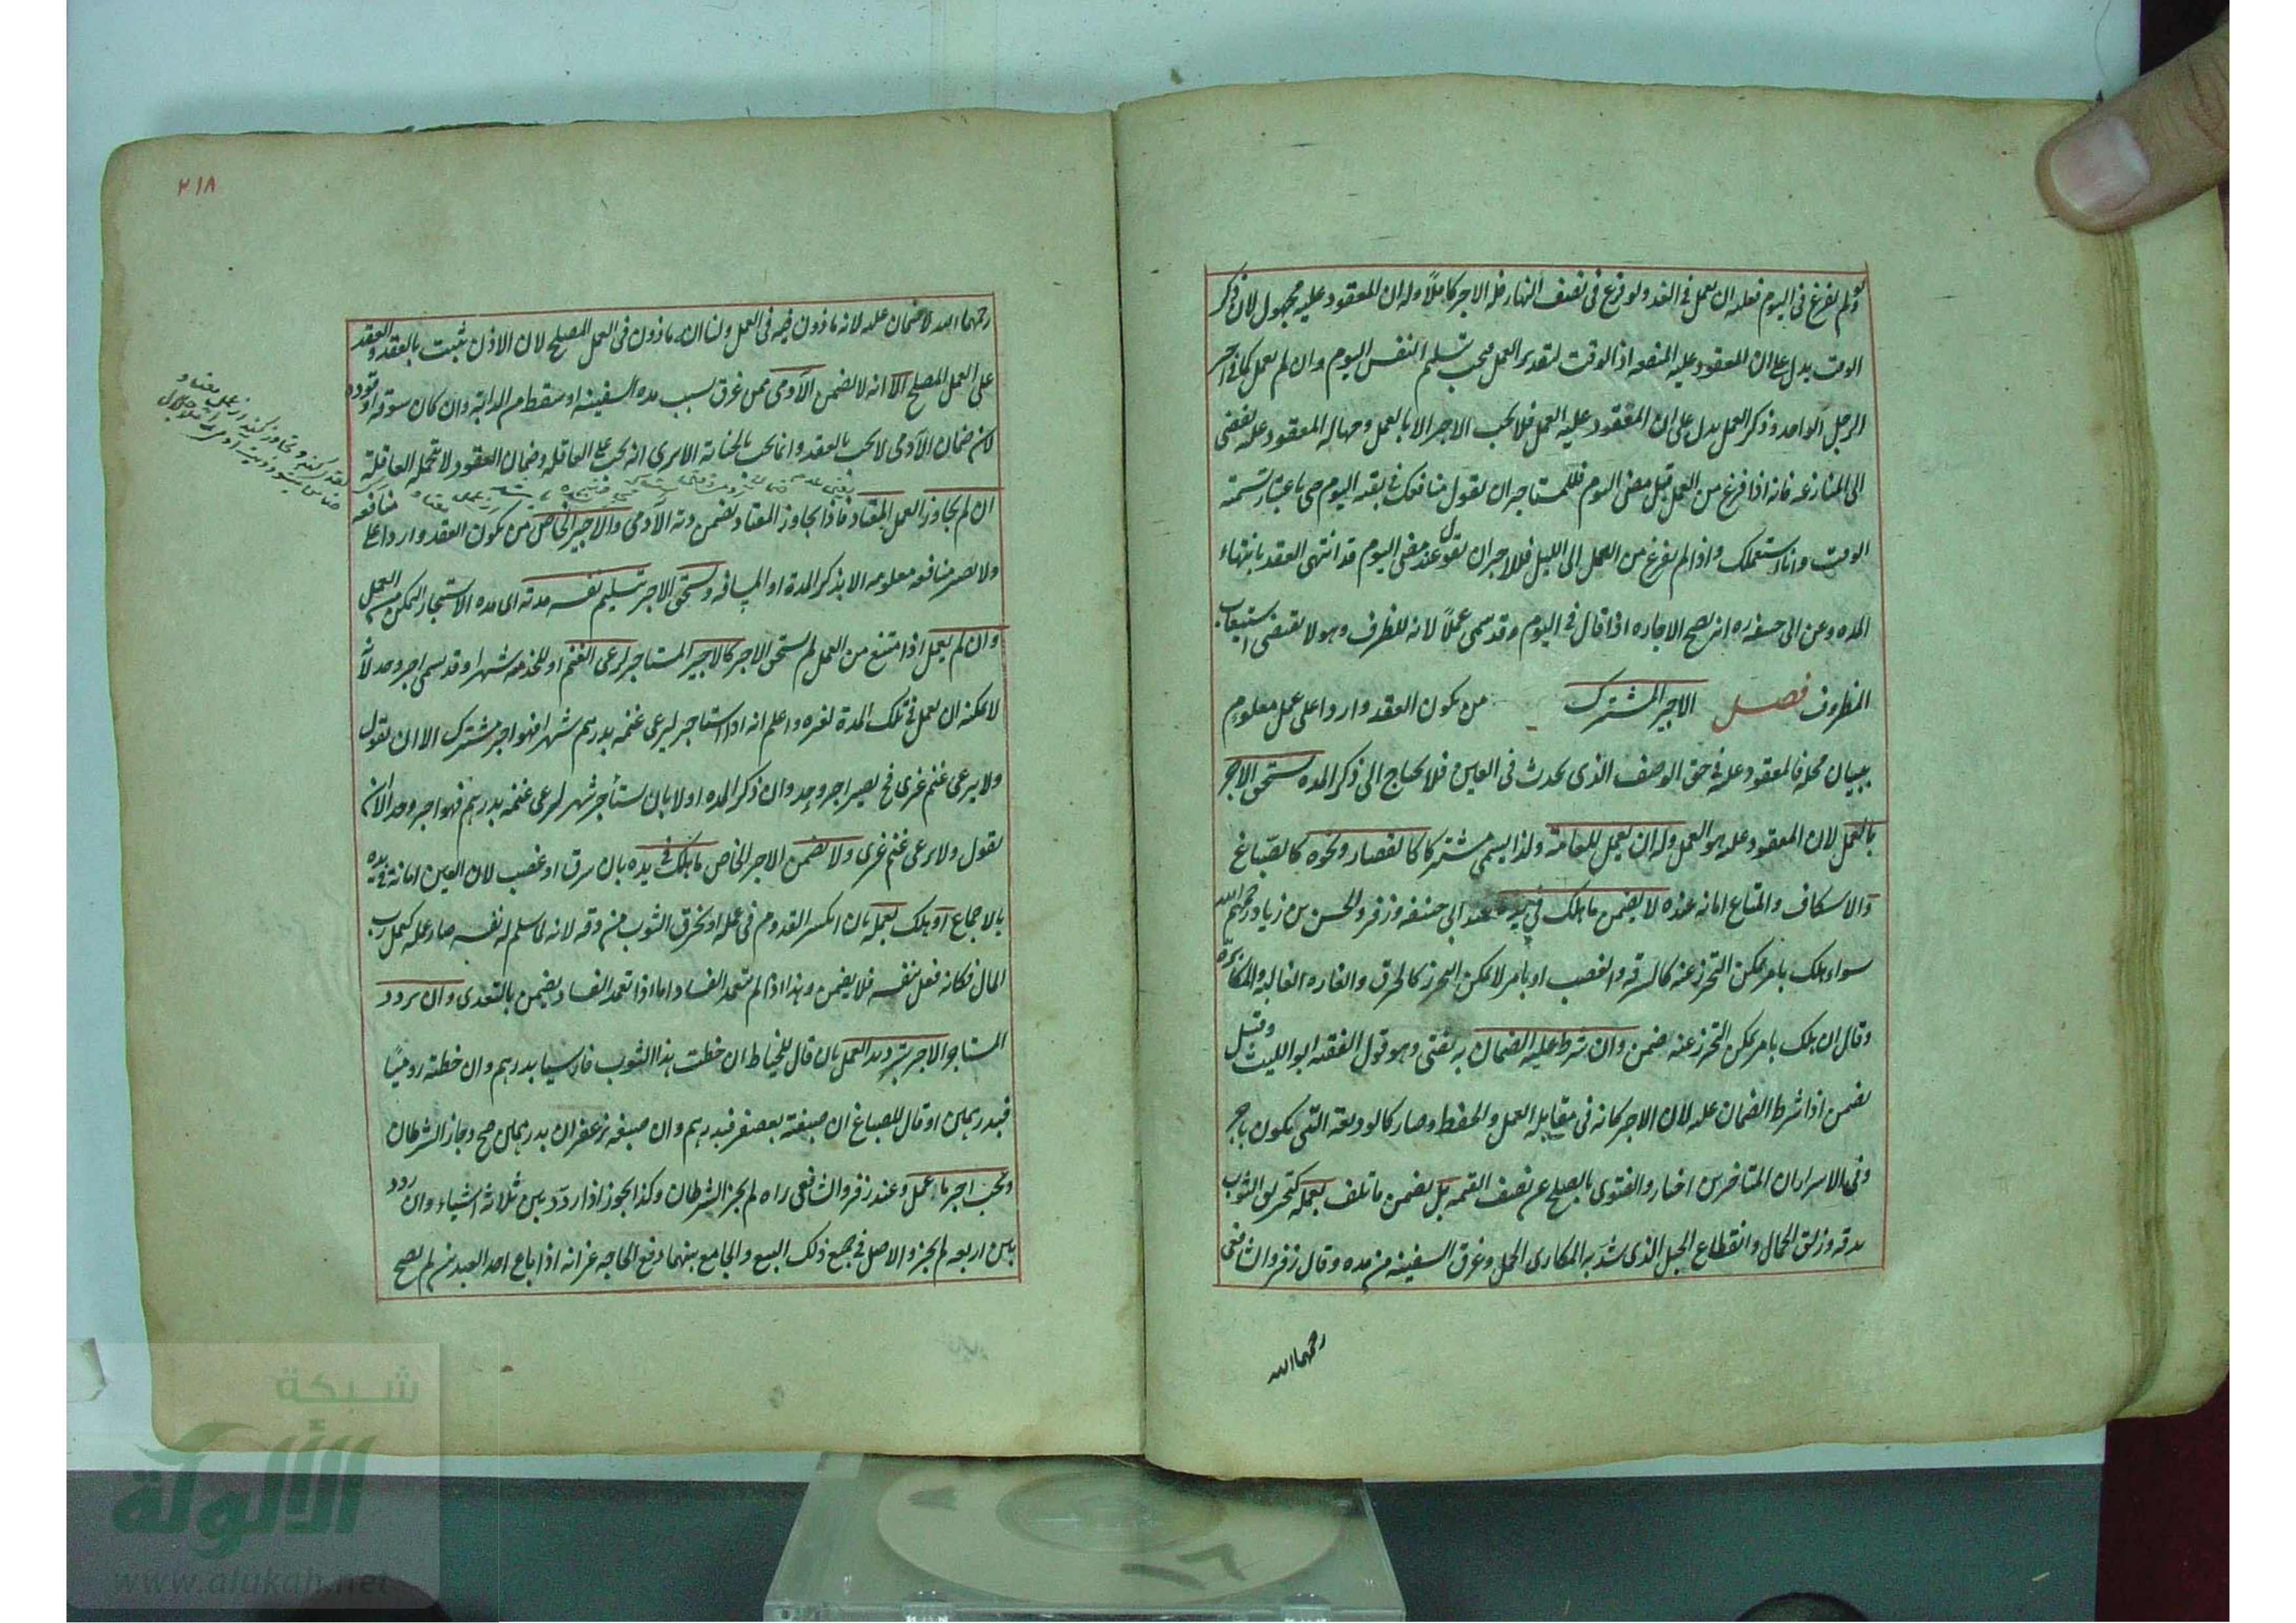 ولو لم يفرغ في اليوم فعليه ان يعمل في الغد ولو فرغ في نصف النهار فله الاجر كاملاً وله ان المعقود عليه مجهول لان ذكر
الوقت يدل على ان المعقود عليه المنفعه اذ الوقت لتقدير العمل فيجب بتسليم النفس اليوم وان لم يعمل كما في اجير
الرجل الواحد وذكر العمل يدل على ان المعقود عليه العمل فلا يجب الاجر الا بالعمل وجهالة المعقود عليه تفضى
الى المنازعه فانه اذا فرغ من العمل قبل مضى اليوم فللمستاجر ان يقول منافعك في بقية اليوم حقى باعتبار تسمية
الوقت وانا استعملك واذا لم يفرغ من العمل الى الليل فللاجير ان يقول عند مضى اليوم قد انتهى العقد بانتهاء
المده وعن ابى حنيفه ره انه يصح الاجاره اذا قال في اليوم وقد سمى عملاً لانه للظرف وهو لا يقتضى استيعاب
المظروف فصل الاجير المشترك من يكون العقد واردا على عمل معلوم
ببيان محله فالمعقود عليه في حق الوصف الذى يحدث في العين فلا يحتاج الى ذكر المده يستحق الاجر
بالعمل لان المعقود عليه هو العمل وله ان يعمل للعامة ولذا يسمى مشتركا كالقصار ونحوه كالصبّاغ
والاسكاف والمتاع امانه عنده لا يضمن ما هلك في يده عند ابى حنيفه وزفر والحسن بن زياد رحمهم الله
سواء هلك بامر يمكن التحرز عنه كالسرقه والغصب او بامر لا يمكن التحرز كالحرق والغاره الغالبه والمكابره
وقالا ان هلك بامر يمكن التحرز عنه يضمن وان شرط عليه الضمان به يفتى وهو قول الفقيه ابو الليث وقيل
يضمن اذا شرط الضمان عليه لان الاجر كانه في مقابلة العمل والحفظ وصار كالوديعة التى يكون باجر
وفى الاسرار ان المتاخرين اختاروا الفتوى بالصلح عن نصف القيمه بل يضمن ما تلف بعمله كتخريق الثوب
بدقه وزلق الحمال وانقطاع الحبل الذى شدّ به المكارى الحمل وغرق السفينه من مده وقال زفر والشافعى
رحمهما الله
٢١٨
رحمهما الله لا ضمان عليه لانه ماذون فيه في العمل ولنا ان ماذون فى العمل المصلح لان الاذن يثبت بالعقد والعقد
على العمل المصلح الا انه لا يضمن الآدمى ممن غرق بسبب مده السفينه او سقط من الدابه وان كان بسوقه او قوده
لان ضمان الآدمى لا يجب بالعقد وانما يجب بالجناية الا يرى انه يجب على العاقله وضمان العقود لا تتحمل العاقلة
ان لم يجاوز العمل المعتاد فاذا يجاوز المعتاد يضمن دية الآدمى والاجير الخاص من يكون العقد واردا على منافعه
ولا تصير منافعه معلومه الا بذكر المدة او المسافه ويستحق الاجر بتسليم نفسه مدته اى مده الاستيجار للتمكن من العمل
وان لم يعمل اذا امتنع من العمل لم يستحق الاجر كالاجير المستاجر لرعى الغنم او للخدمه شهرا وقد يسمى اجير وحد لانه
لا يمكنه ان يعمل في تلك المدة لغيره واعلم انه اذا استاجر ليرعى غنمه بدرهم شهرا فهو اجير مشترك الا ان يقول
ولا يرعى غنم غيرى فح يصير اجير وحد وان ذكر المده اولا بان يستأجر شهرا ليرعى غنمه بدرهم فهو اجير وحد الا ان
يقول ولا يرعى غنم غيرى ولا يضمن الاجير الخاص ما هلك في يده بان سرق او غصب لان العين امانة في يده
بالاجماع او هلك بعمله بان انكسر القدوم فى عمله او تخرق الثوب من دقه لانه لما سلم له نفسه صار عمله كعمل رب
المال فكانه فعل بنفسه فلا يضمن وهذا اذا لم يتعمد الفساد اما اذا تعمد الفساد يضمن بالتعدى وان يردد
المستاجر الاجر بترديد العمل بان قال للخياط ان خطت هذا الثوب فارسيا بدرهم وان خطته روميًا
فبدرهمين او قال للصباغ ان صبغته بعصفر فبدرهم وان صبغه بزعفران بدرهمين صح وجاز الشرطان
ويجب اجر ما عمل وعند زفر والشافعى راه لم يجز الشرطان وكذا يجوز اذا ردّد بين ثلاثة اشياء وان ردد
بين اربعه لم يجز والاصل في جميع ذلك البيع والجامع بينهما دفع الحاجه غير انه اذا باع احد العبدين لم يصح
شبكة
الألوكة
www.alukah.net